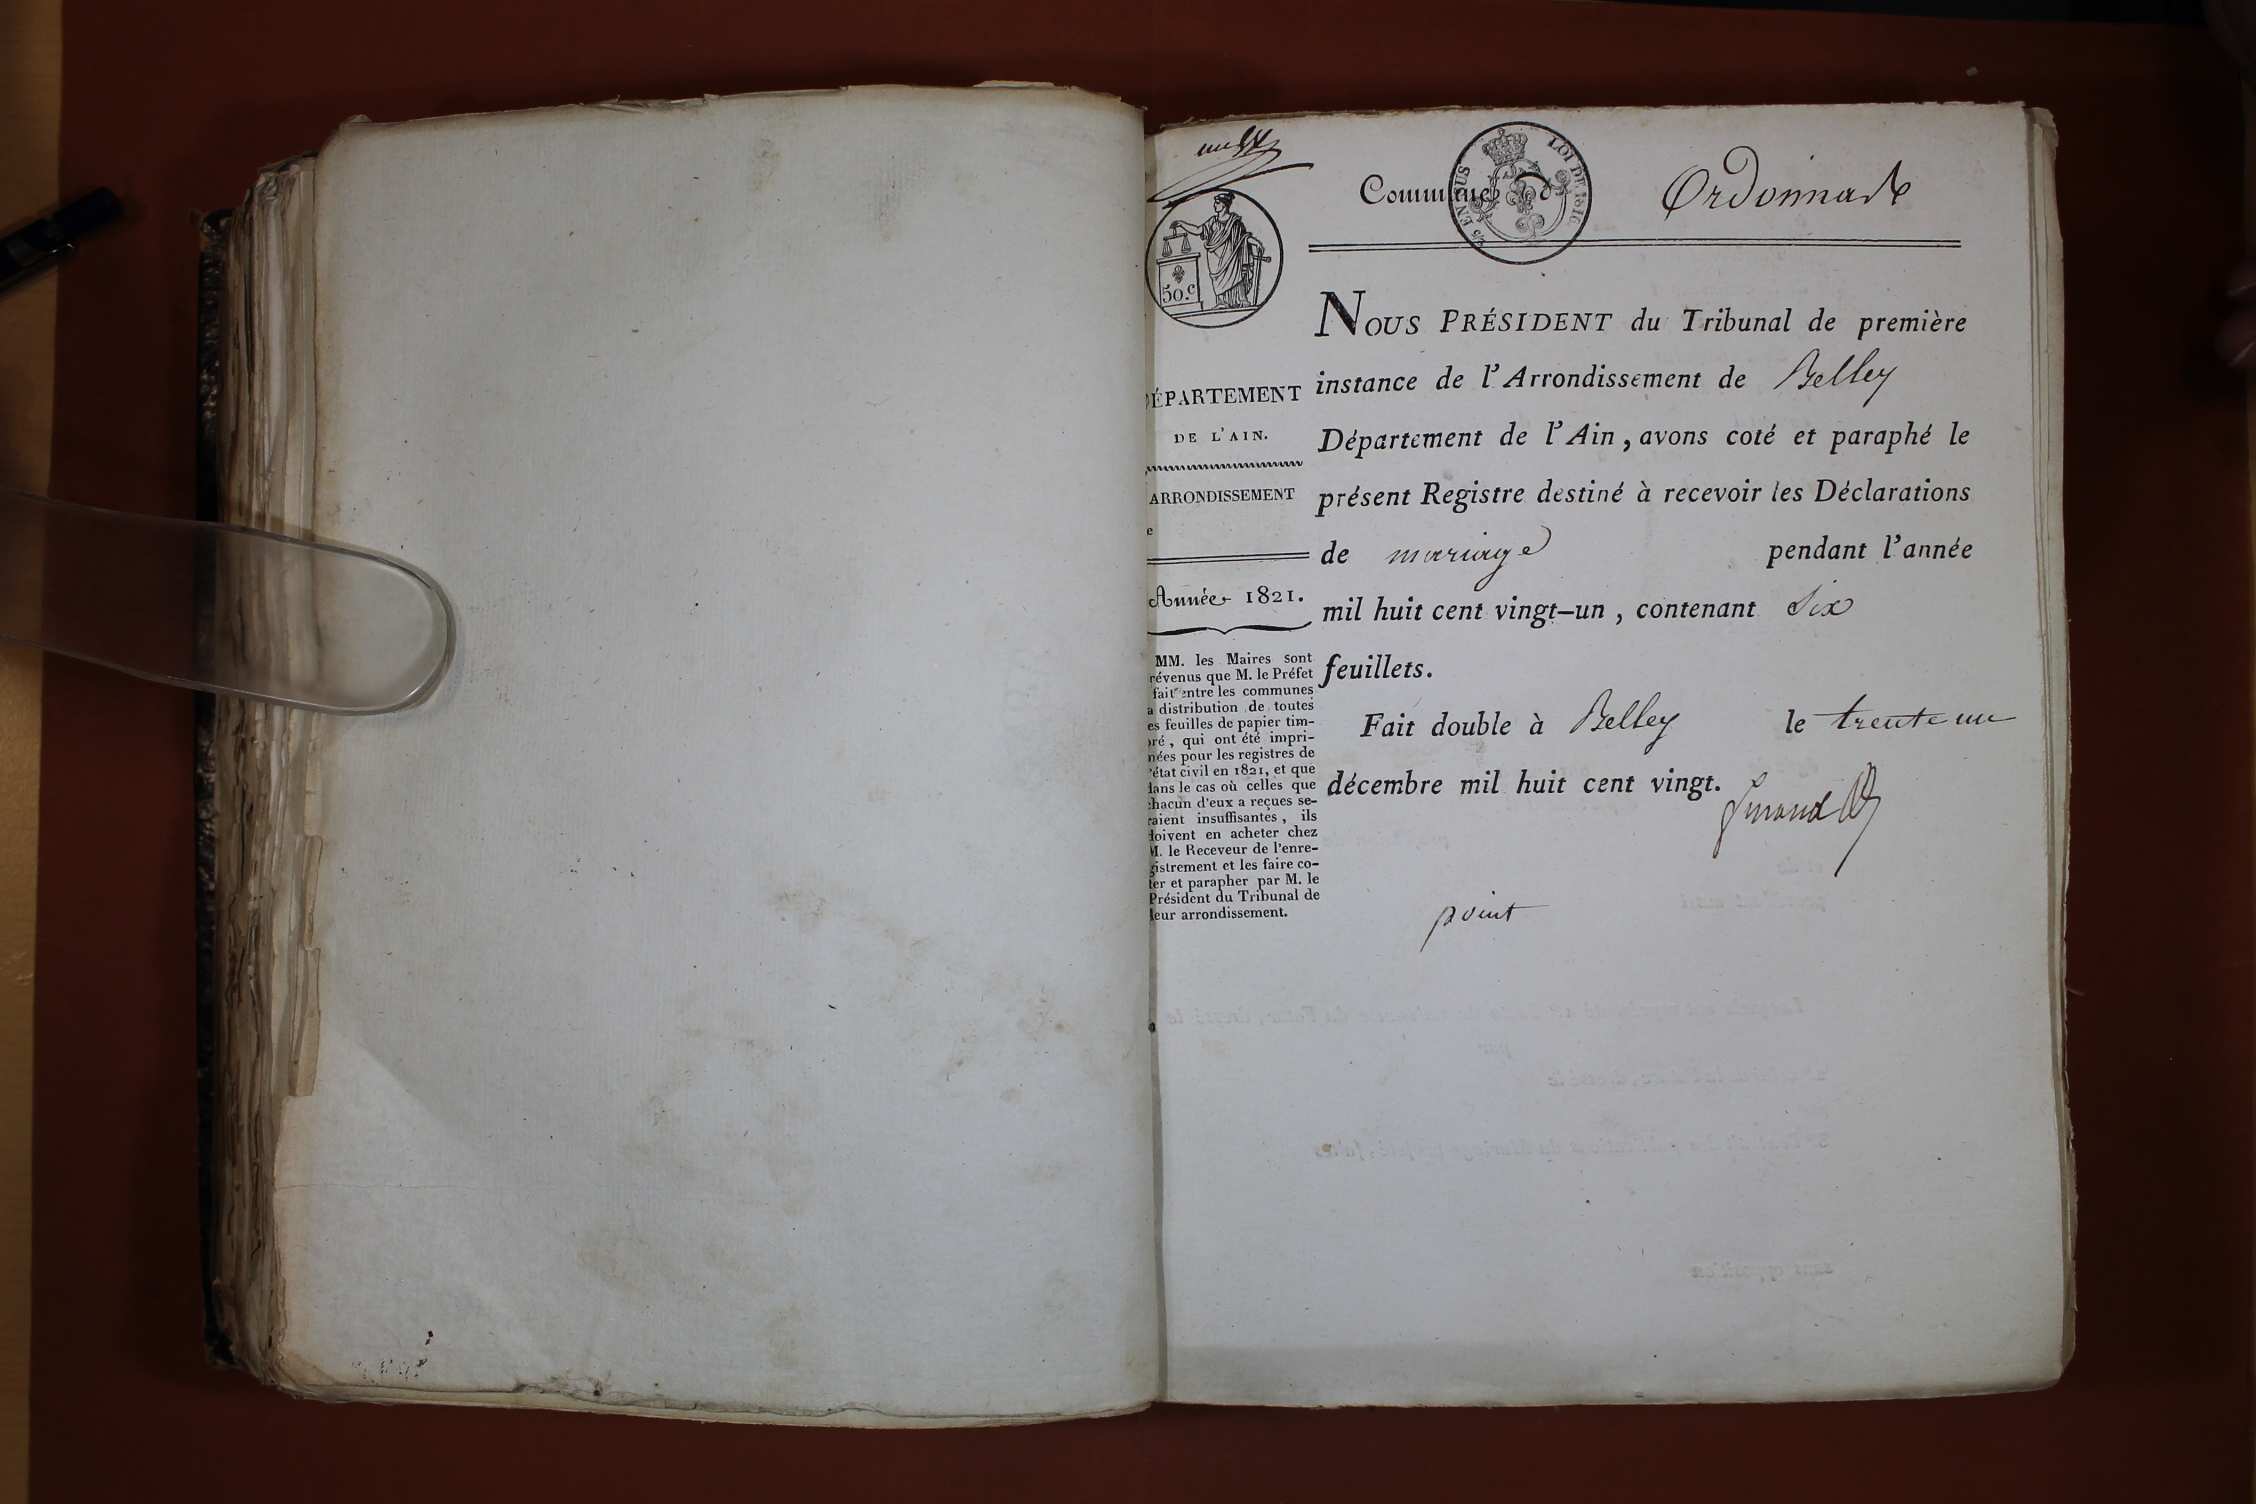 Commune d Ordonnas
5/5 EN SUS
LOI DE 1816
50.c
NOUS PRÉSIDENT du Tribunal de première
instance de l'Arrondissement de Belley
Département de l'Ain, avons coté et paraphé le
présent Registre destiné à recevoir les Déclarations
de mariage pendant l'année
mil huit cent vingt-un, contenant six
feuillets.
Fait double à Belley le trente un
décembre mil huit cent vingt.
point
DÉPARTEMENT
DE L'AIN.
ARRONDISSEMENT
e
Année 1821.
MM. les Maires sont
révenus que M. le Préfet
fait entre les communes
a distribution de toutes
es feuilles de papier tim-
ré, qui ont été impri-
nées pour les registres de
'état civil en 1821, et que
dans le cas où celles que
chacun d'eux a reçues se-
raient insuffisantes, ils
doivent en acheter chez
M. le Receveur de l'enre-
gistrement et les faire co-
ter et parapher par M. le
Président du Tribunal de
leur arrondissement.